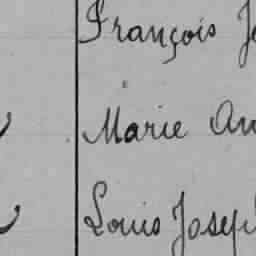 François
Marie
Louis Joseph